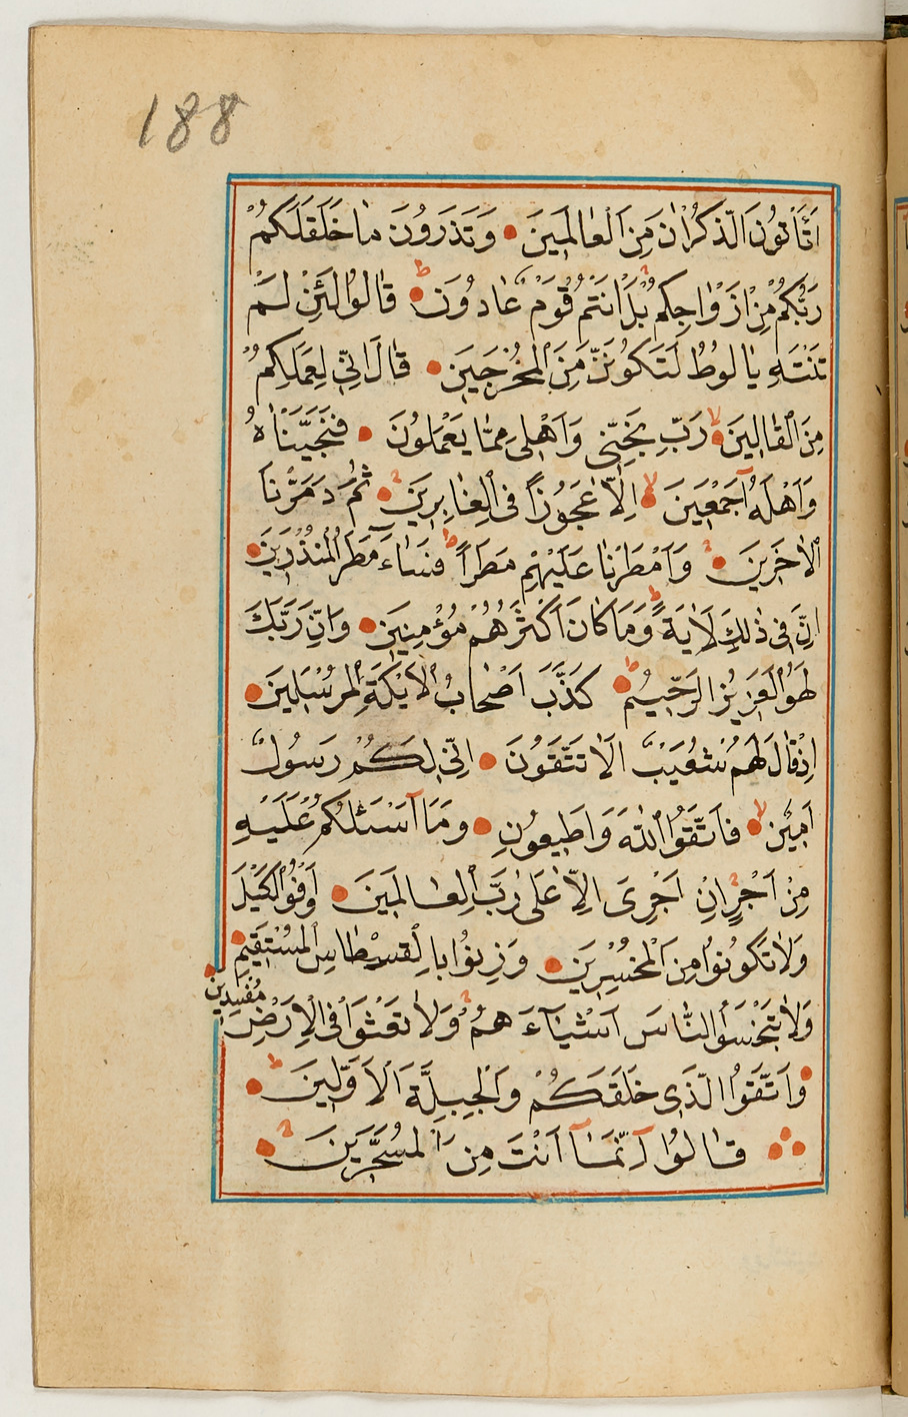 188
اَتَأْتُونَ الذُّكْرَانَ مِنَ الْعَالَمِينَ وَتَذَرُونَ مَا خَلَقَ لَكُمْ
رَبُّكُمْ مِنْ اَزْوَاجِكُمْ بَلْ اَنْتُمْ قَوْمٌ عَادُونَ قَالُوا لَئِنْ لَمْ
تَنْتَهِ يَا لُوطُ لَتَكُونَنَّ مِنَ الْمُخْرَجِينَ قَالَ اِنِّي لِعَمَلِكُمْ
مِنَ الْقَالِينَ رَبِّ نَجِّنِي وَاَهْلِي مِمَّا يَعْمَلُونَ فَنَجَّيْنَاهُ
وَاَهْلَهُ اَجْمَعِينَ اِلَّا عَجُوزًا فِي الْغَابِرِينَ ثُمَّ دَمَّرْنَا
الْاٰخَرِينَ وَاَمْطَرْنَا عَلَيْهِمْ مَطَرًا فَسَاءَ مَطَرُ الْمُنْذَرِينَ
اِنَّ فِي ذٰلِكَ لَاٰيَةً وَمَا كَانَ اَكْثَرُهُمْ مُؤْمِنِينَ وَاِنَّ رَبَّكَ
لَهُوَ الْعَزِيزُ الرَّحِيمُ كَذَّبَ اَصْحَابُ الْاَيْكَةِ الْمُرْسَلِينَ
اِذْ قَالَ لَهُمْ شُعَيْبٌ اَلَا تَتَّقُونَ اِنِّي لَكُمْ رَسُولٌ
اَمِينٌ فَاتَّقُوا اللّٰهَ وَاَطِيعُونِ وَمَا اَسْئَلُكُمْ عَلَيْهِ
مِنْ اَجْرٍ اِنْ اَجْرِيَ اِلَّا عَلٰى رَبِّ الْعَالَمِينَ اَوْفُوا الْكَيْلَ
وَلَا تَكُونُوا مِنَ الْمُخْسِرِينَ وَزِنُوا بِالْقِسْطَاسِ الْمُسْتَقِيمِ
وَلَا تَبْخَسُوا النَّاسَ اَشْيَاءَ هُمْ وَلَا تَعْثَوْا فِي الْاَرْضِ مُفْسِدِينَ
وَاتَّقُوا الَّذِي خَلَقَكُمْ وَالْجِبِلَّةَ الْاَوَّلِينَ
قَالُوا اِنَّمَا اَنْتَ مِنَ الْمُسَحَّرِينَ